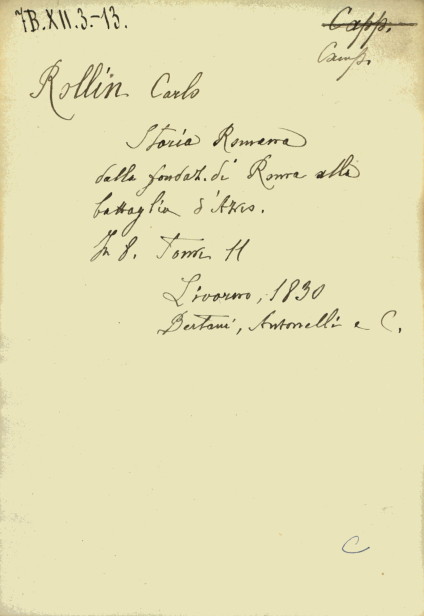 7B.XII.3.-13.
Capp.
Camp.
Rollin Carlo
Storia Romana
dalla fondaz. di Roma alla
battaglia d'Azio.
In 8. Tomi 11
Livorno, 1830
Bertani, Antonelli e C.
C